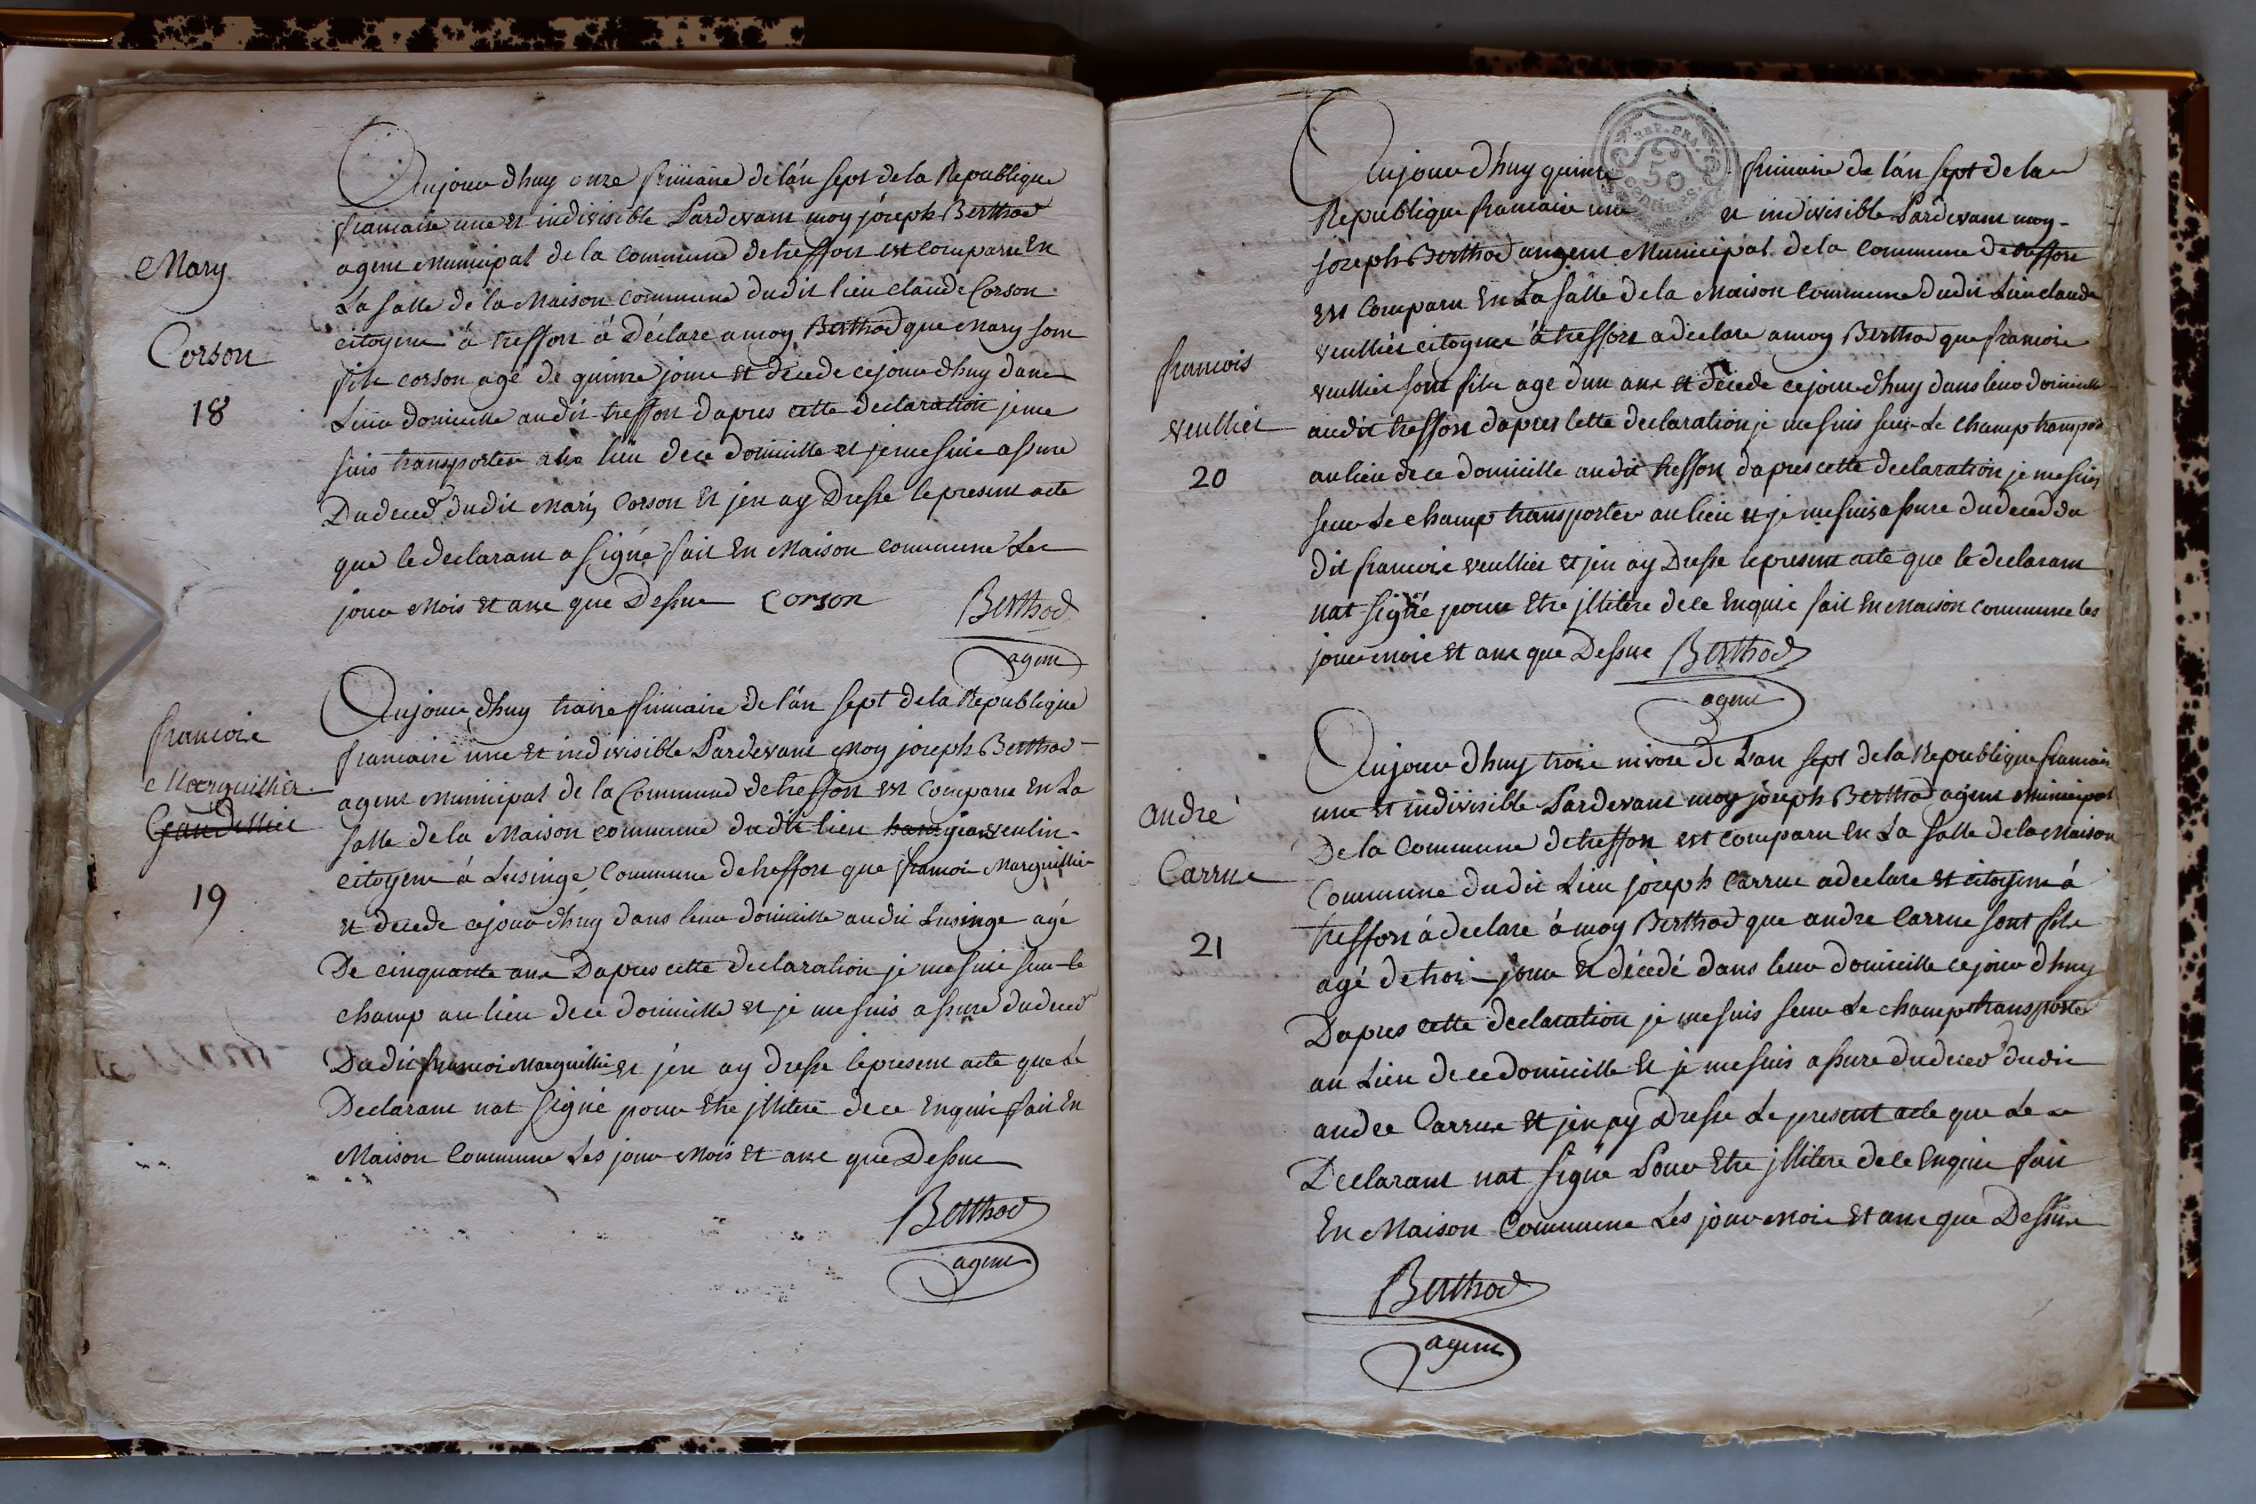 Mary
Corson
18
Aujour dhuy onze frimaire de lán sept de la Republique
francaise une et indivisible Pardevant moy jóseph Berthod
agent municipal de la commune de treffort est comparu En
La salle de la Maison commune dudit lieu claude Corson
citoyens á treffort á déclare a moy Berthod que Mary son
fils corson agé de quinze jours et décede ce jour dhuy dans
Leur domicille audit treffort dapres cette declaration je me
suis transporter au lieu de ce domicille et je me suis assure
Du deced dudit Mary Corson Et jen ay Dresse le present acte
que le declarant a signé fait En Maison commune Les
jour Mois et ans que Dessus Corson Berthod
agent
francois
Marguillier
Gaudillier
19
Aujour dhuy traize frimaire de lán sept de la Republique
francaise une Et indivisible Pardevant Moy joseph Berthod
agent municipal de la Commune de treffort est comparu En La
salle de la Maison commune dudit lieu jean seulin
citoyens á Lusinge Commune de treffort que francois Marguillier
et decede ce jour dhuy dans leur domicille audit Lusinge agé
De cinquante ans Dapres cette declaration je me suis sur le
champ au lieu de ce domicille et je me suis assure du deced
Dudit francois Marguillier et jén ay dresse le present acte que Le
Declarant nat signé pour Etre jllitere de ce Enquis fait En
Maison Commune Les jour Mois et ans que Dessus
Berthod
agent
REP. FRA.
50
CENTIMES
francois
veullier
20
Aujour dhuy quinze frimaire de lán sept de la
Republique francaise une et indivisible Pardevant moy
joseph Berthod angent Municipal de la commune de treffort
est Comparu En La salle de la Maison Commune dudit Lieu claude
veullier citoyens á treffort a declare a moy Berthod que francois
veullier sont fils age dun ans et décede ce jour dhuy dans leur domicille
audit treffort dapres cette declaration je me suis sur Le champ transpor
au lieu de ce domicille audit treffort dapres cette declaration je me suis
sur Le champ transporter au lieu et je me suis assure du deced du
dit francois veullier et jen ay Dresse le present acte que le declarant
nat signé pour Etre jllitere de ce Enquis fait En Maison commune les
jour mois et ans que Dessus Berthod
agent
andré
Carrue
21
Aujour dhuy trois nivose de Lan sept de la Republique francais
une et indivisible Pardevant moy joseph Berthod agent municipal
De la Commune de treffort est comparu En La salle de la Maison
Commune dudit Lieu joseph Carrue a declare et citoyens á
treffort á declare á moy Berthod que andre Carrue sont fils
agé de trois jour et décédé dans leur domicille ce jour dhuy
Dapres cette declaration je me suis sur Le champ transporter
au Lieu de ce domicille Et je me suis assure du deced dudit
andre Carrue Et jen ay Dresse Le present acte que Le
Declarant nat signé Pour Etre jllitere de ce Enquis fait
En Maison Commune Les jour mois Et ans que Dessus
Berthod
agent